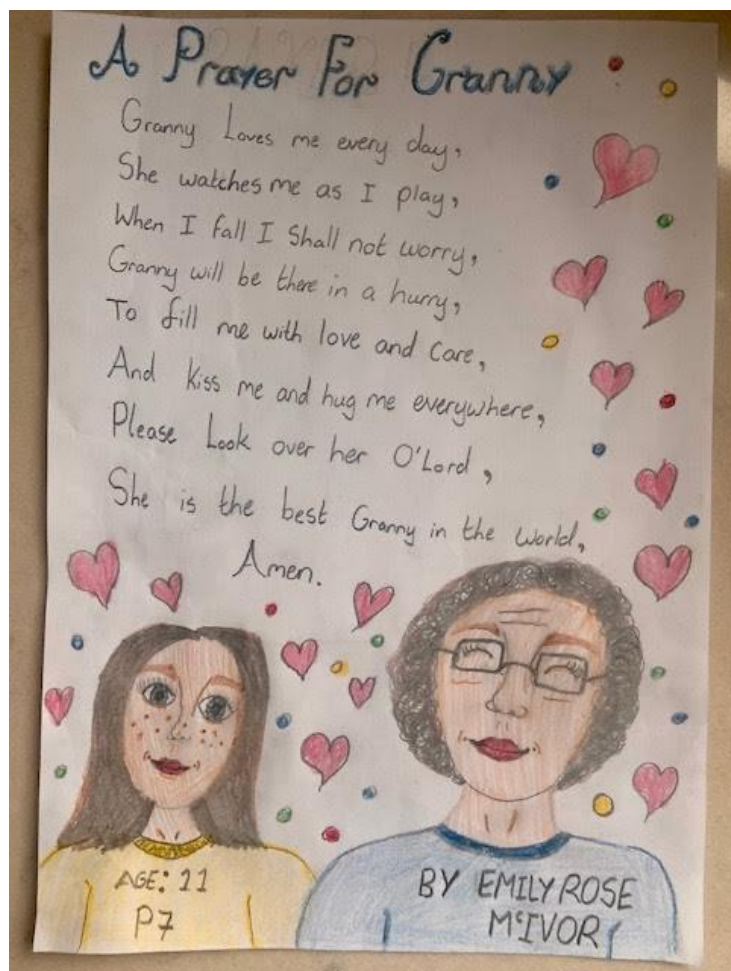 A Prayer For Granny
Granny Loves me every day,
She watches me as I play,
When I fall I Shall not worry,
Granny will be there in a hurry,
To fill me with love and Care,
And kiss me and hug me everywhere,
Please Look over her O'Lord,
She is the best Granny in the World,
Amen.
AGE: 11
P7
BY EMILY ROSE
McIVOR